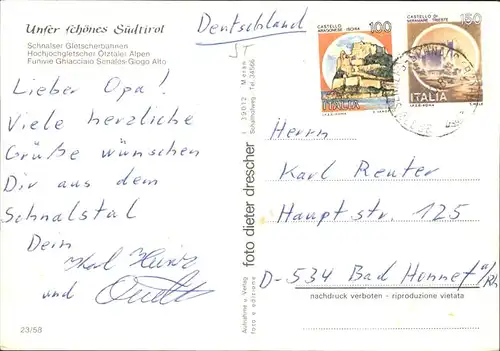 Unser schönes Südtirol
Schnalser Gletscherbahnen
Hochjochgletscher Ötztaler Alpen
Funivie Ghiacciaio Senales-Giogo Alto
Lieber Opa!
Viele herzliche
Grüße wünschen
Dir aus dem
Schnalstal
Dein
Karl Heinz
und
23/58
Deutschland
ST
Aufnahme u. Verlag
foto e edizione
foto dieter drescher
I 39012 Meran
Schafferweg Tel. 34566
CASTELLO ARAGONESE ISCHIA
100
ITALIA
I.P.Z.S.-ROMA
CASTELLO DI
MIRAMARE TRIESTE
150
ITALIA
I.P.Z.S.-ROMA
Herrn
Karl Reuter
Hauptstr. 125
D-534 Bad Honnef a/Rh
nachdruck verboten - riproduzione vietata